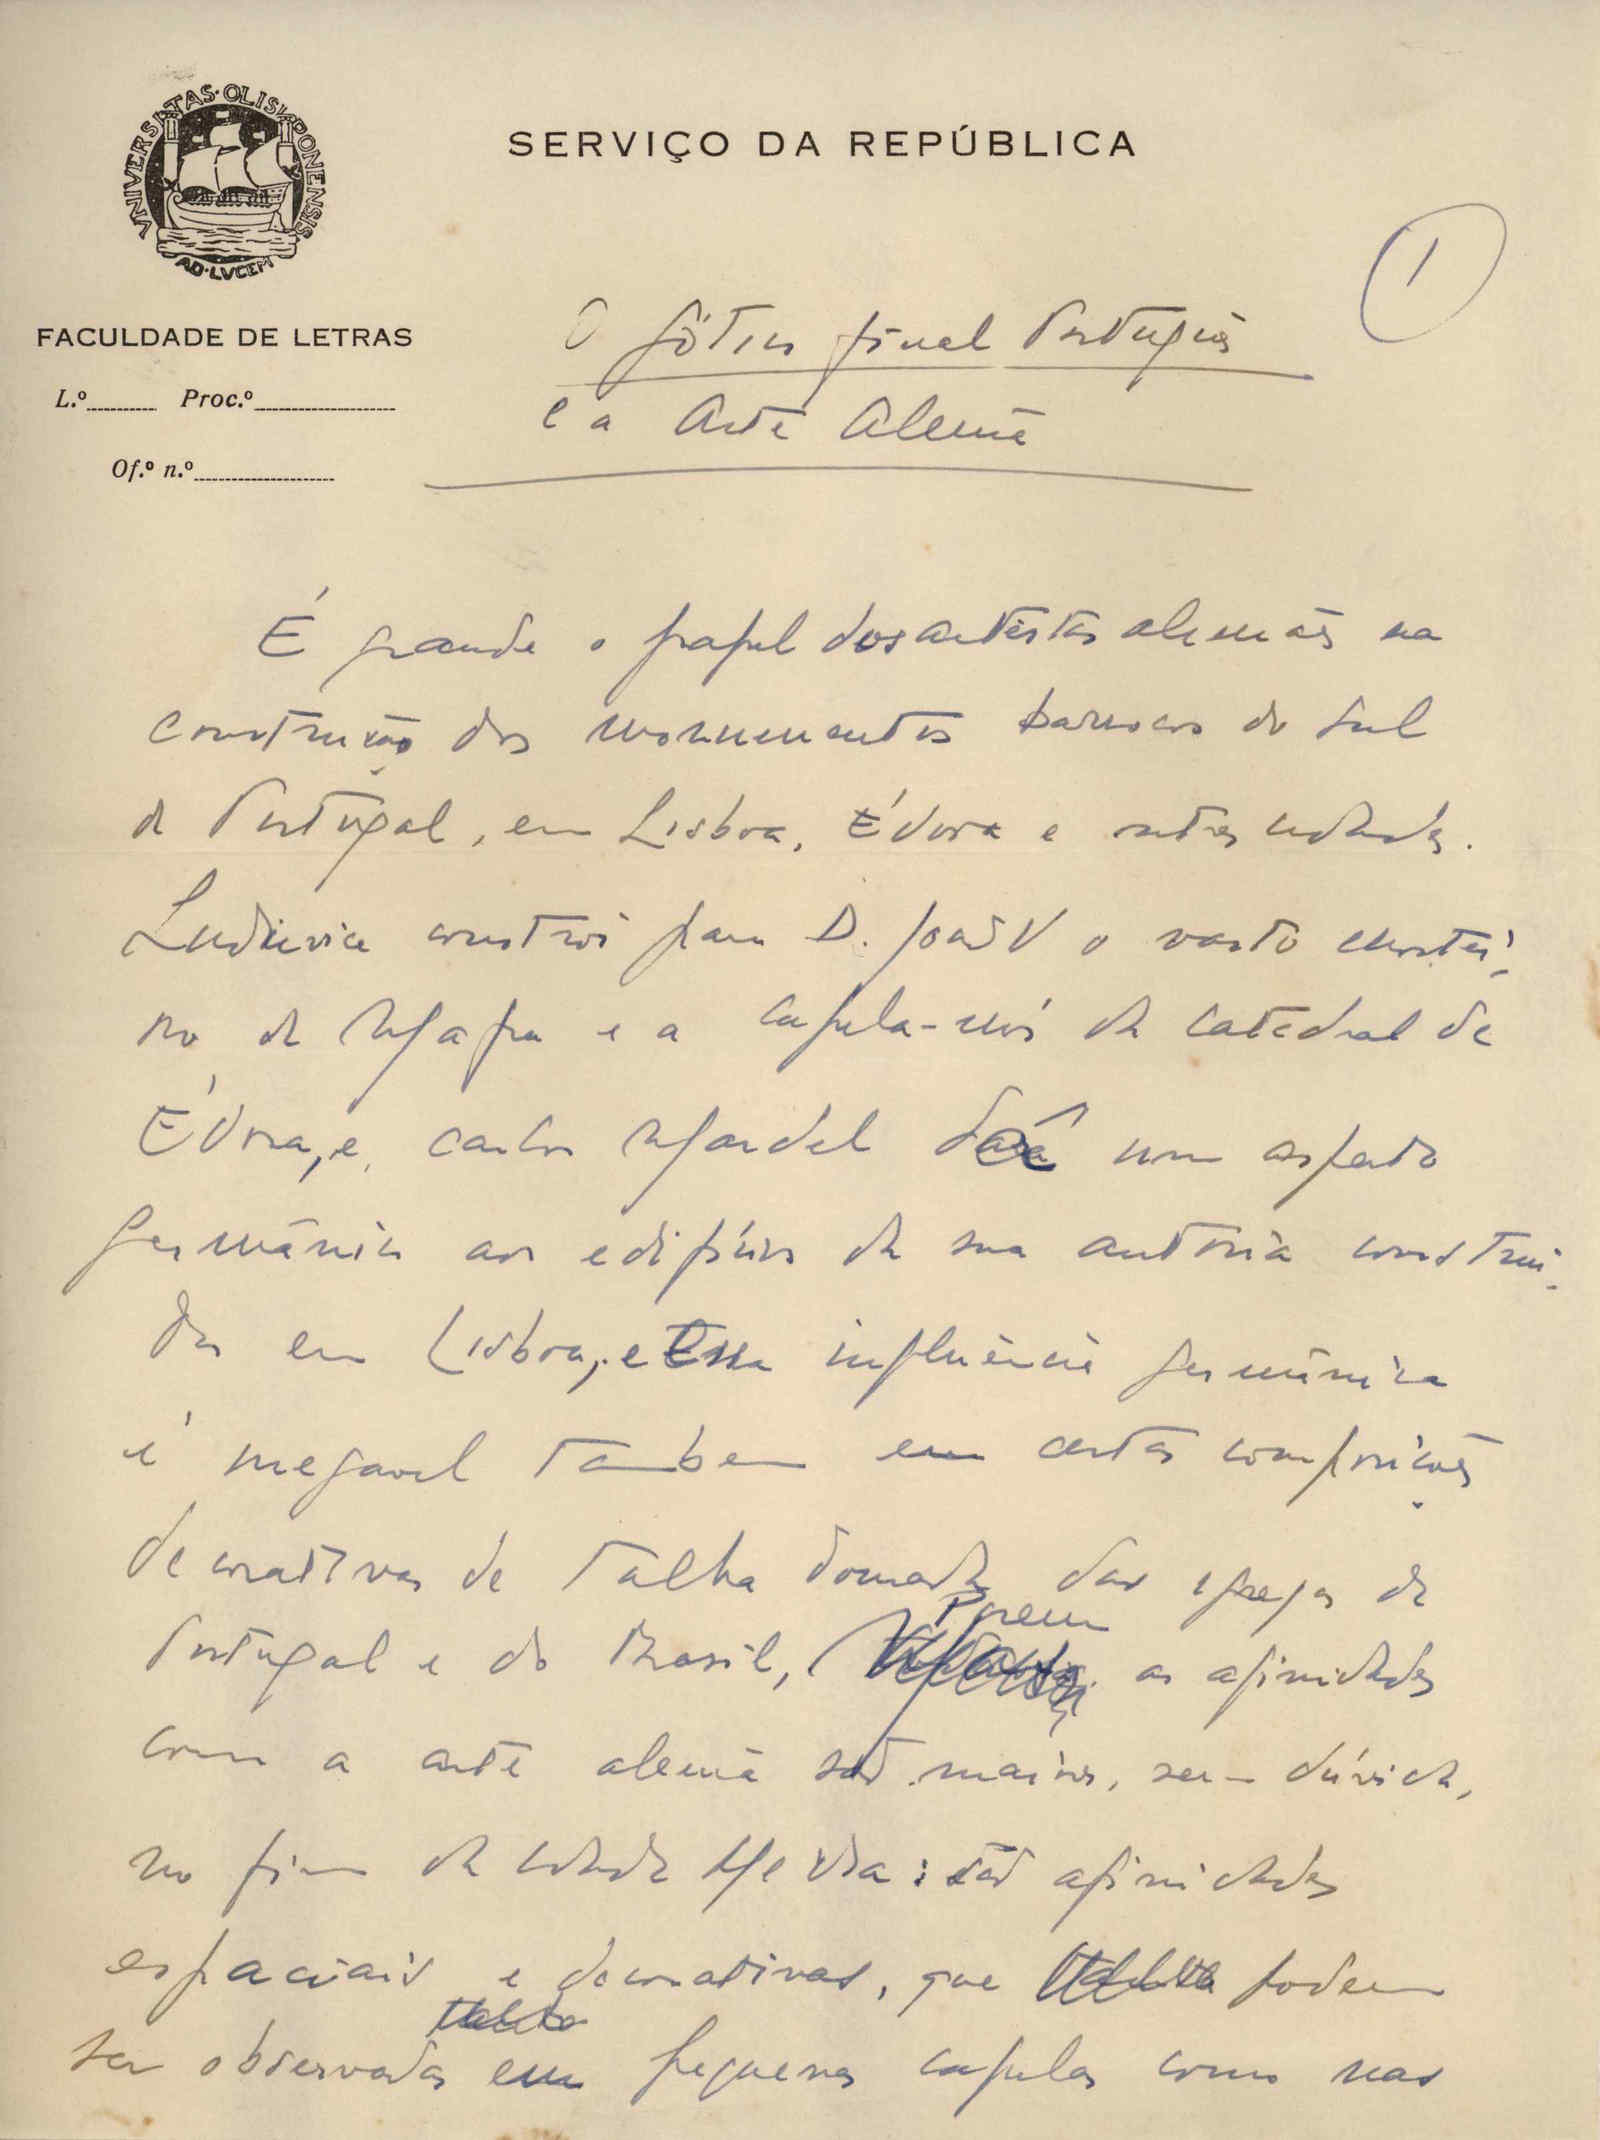 VNIVERSITAS·OLISIPONENSIS
AD·LVCEM
SERVIÇO DA REPÚBLICA
1
FACULDADE DE LETRAS
L.º Proc.º
Of.º n.º
O gótico final Português
e a Arte Alemã
É grande o papel dos artistas alemães na
construção dos monumentos barrocos do sul
de Portugal, em Lisboa, Évora e outras cidades.
Ludovice constroi para D. João V o vasto mostei-
ro de Mafra e a capela-mór da catedral de
Évora, e, Carlos Mardel dá um aspecto
germânico aos edifícios da sua autoria construi-
dos em Lisboa, e essa influência germânica
é inegavel tambem em certas composições
decorativas de talha dourada das igrejas de
Porem
Portugal e do Brasil, as afinidades
com a arte alemã são maiores, sem dúvida,
no fim da Idade Media: são afinidades
espaciais e decorativas, que podem
ser observadas em pequenas capelas como nas